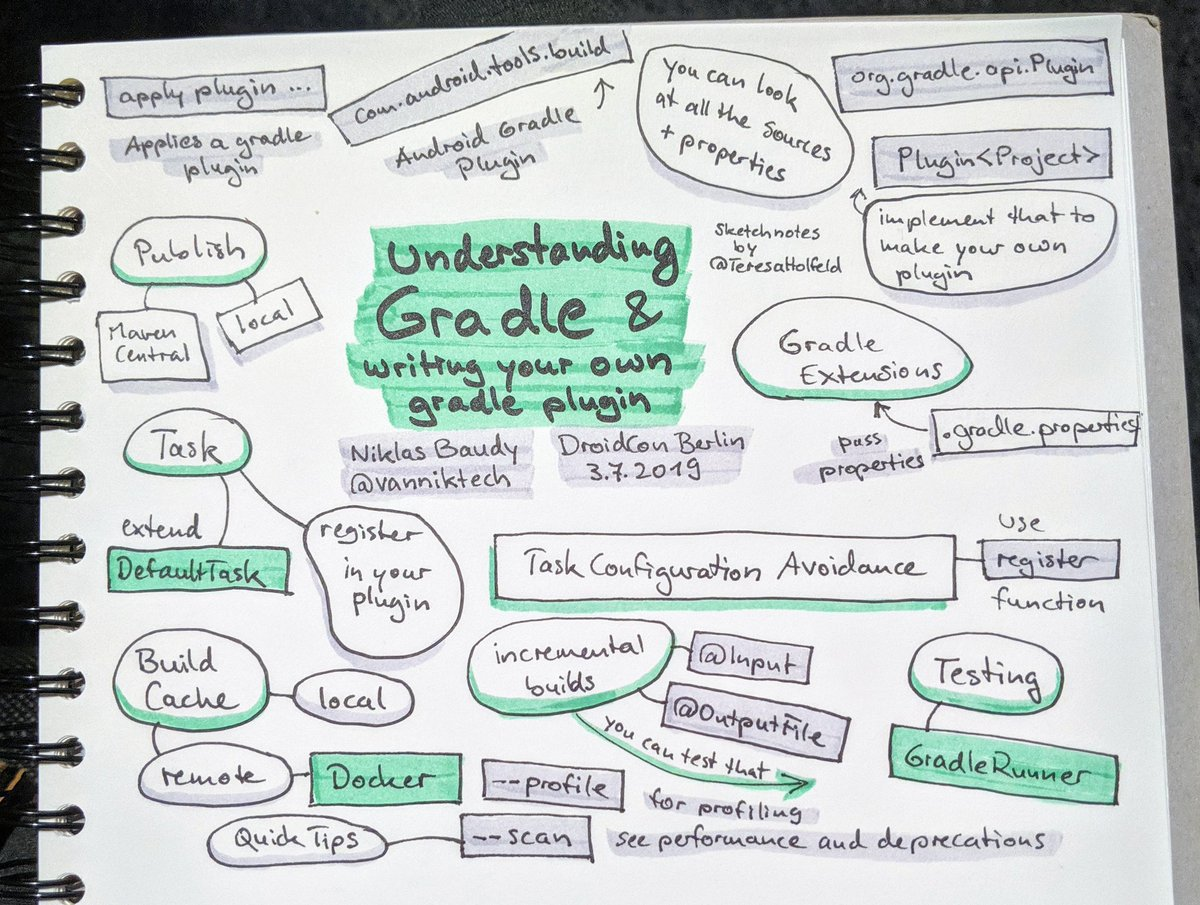 apply plugin ...
Applies a gradle
plugin
com.android.tools.build
Android Gradle
Plugin
you can look
at all the sources
+ properties
org.gradle.api.Plugin
Plugin<Project>
implement that to
make your own
plugin
Publish
Maven
Central
local
Understanding
Gradle &
writing your own
gradle plugin
Sketchnotes
by
@TeresaHolfeld
Niklas Baudy
@vanniktech
DroidCon Berlin
3.7.2019
Gradle
Extensions
.gradle.properties
pass
properties
Task
extend
DefaultTask
register
in your
plugin
Task Configuration Avoidance
use
register
function
Build
Cache
local
remote
Docker
incremental
builds
@Input
@OutputFile
you can test that
Testing
GradleRunner
--profile
for profiling
Quick Tips
--scan
see performance and deprecations